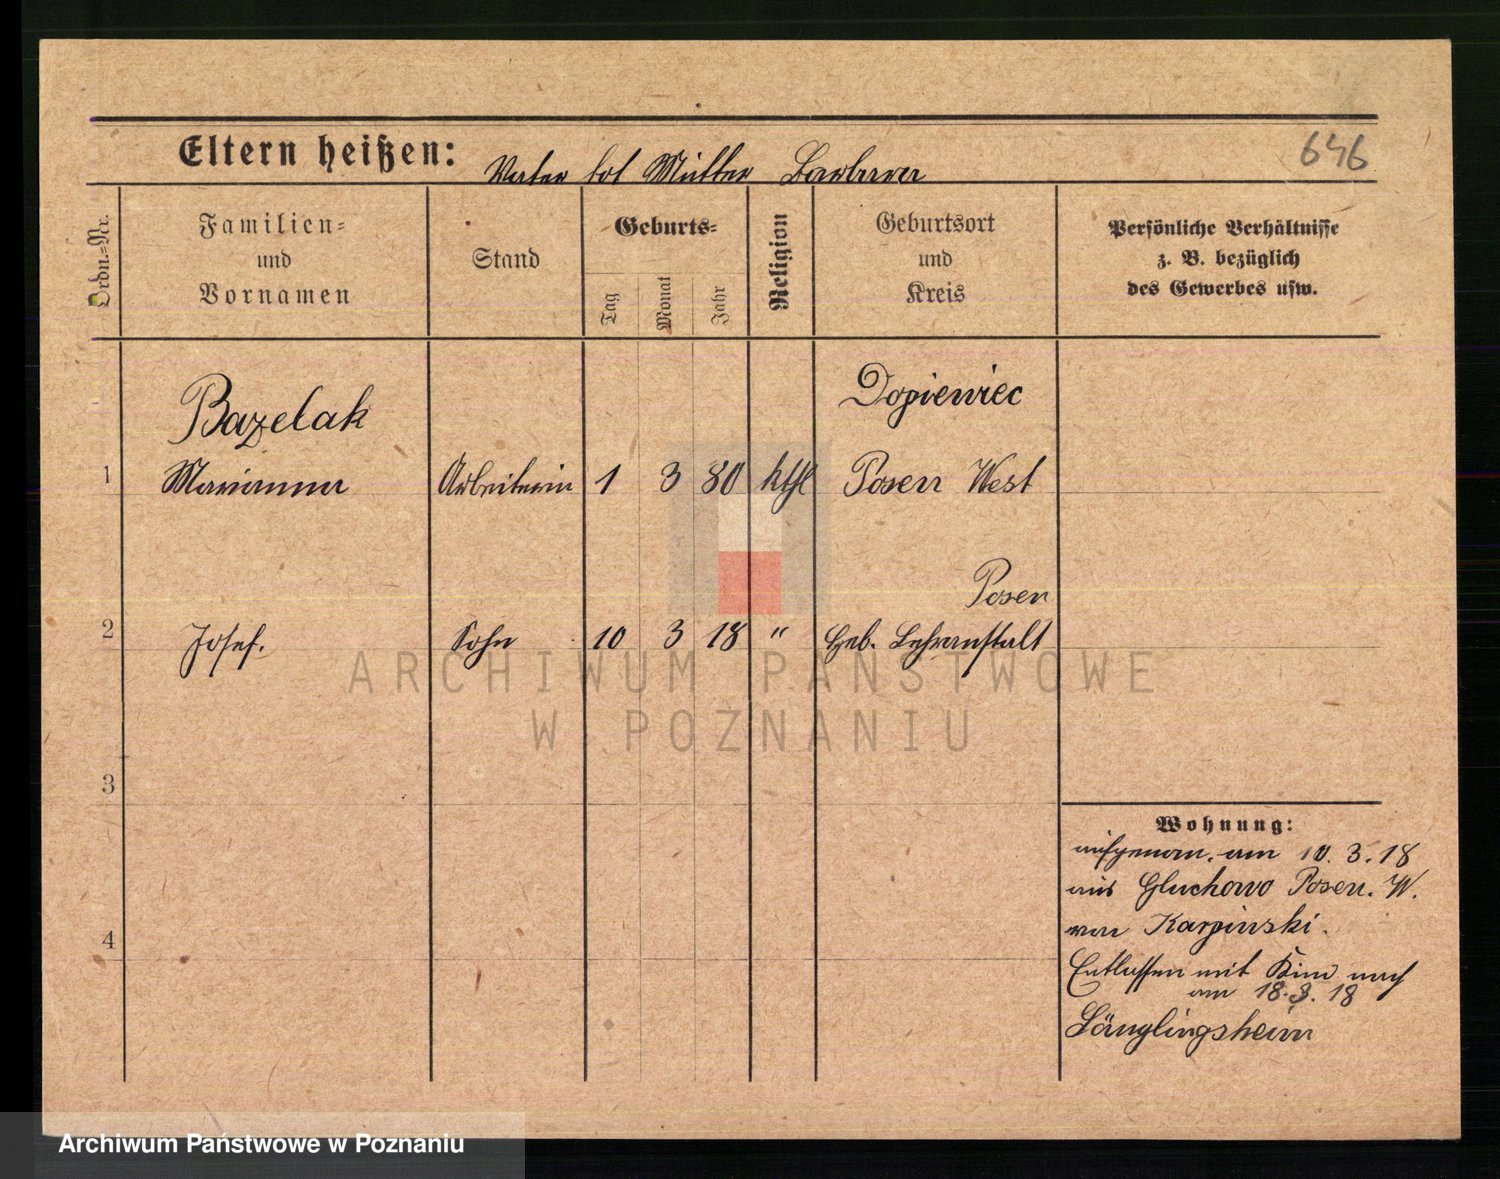 Eltern heißen: Vater tot Mutter Barbara
646
Ordn.-Nr.
Familien-
und
Vornamen
Stand
Geburts-
Tag
Monat
Jahr
Religion
Geburtsort
und
Kreis
Persönliche Verhältnisse
z. B. bezüglich
des Gewerbes usw.
Bazelak
Dopiewiec
1 Marianna Arbeiterin 1 3 80 kthl Posen West
Posen
2 Josef. Sohn 10 3 18 " Heb. Lehranstalt
3
4
Wohnung:
aufgenom. am 10. 3. 18
aus Gluchowo Posen. W.
von Karpinski.
Entlassen mit Kind nach
am 18.3.18
Säuglingsheim
ARCHIWUM PAŃSTWOWE
W POZNANIU
Archiwum Państwowe w Poznaniu